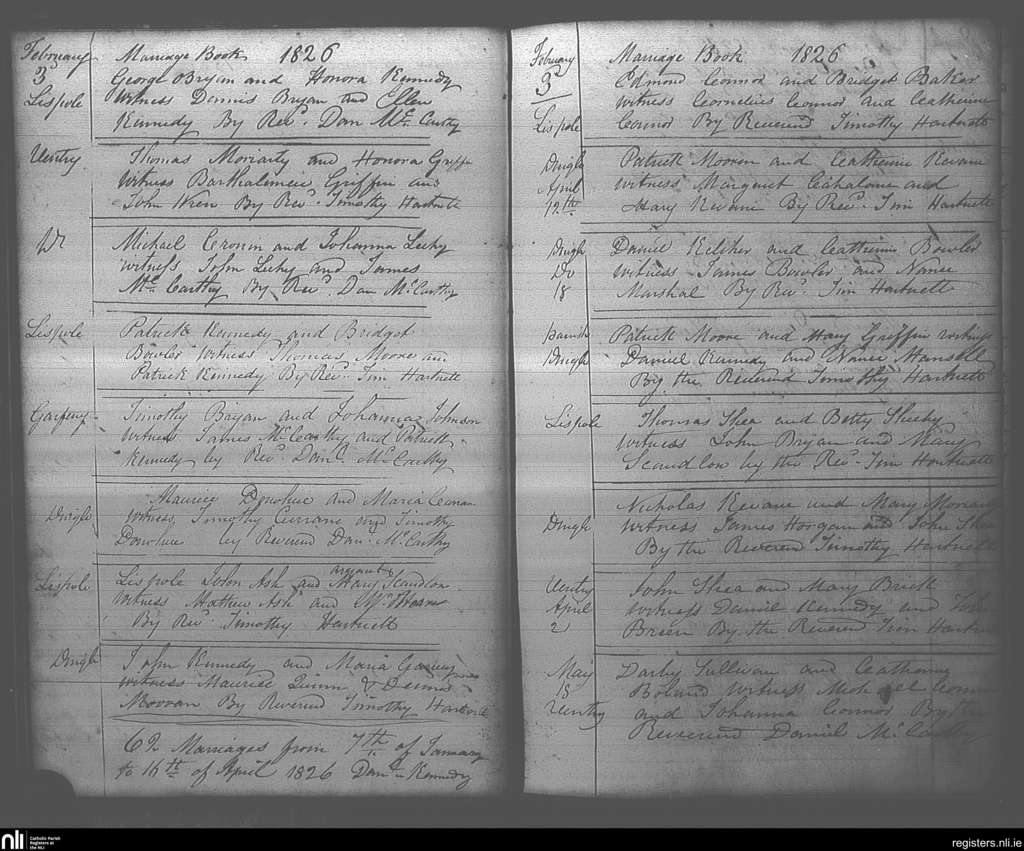 February Marriage Book 1826
3 George Bryan and Honora Kennedy
Lispole Witness Dennis Bryan and Ellen
Kennedy By Revd. Dan Mc Carthy
Ventry Thomas Moriarty and Honora Griffin
Witness Barthalimew Griffin and
John Wren By Revd. Timothy Hartnett
Michael Cronin and Johanna
witness John and James
Mc Carthy By Revd. Dan McCarthy
Lispole Patrick Kennedy and Bridget
Bowler Witness Thomas Moore and
Patrick Kennedy By Revd. Tim Hartnett
Timothy Bryan and Johanna Johnson
Witness James McCarthy and Patrick
Kennedy by Revd. Danl. McCarthy
Maurice Donohue and Maria
Dingle Witness Timothy Currane and Timothy
Donohue by Reverend Danl. McCarthy
Lispole Lispole John Ash and Mary Scandlon
Witness Mathew Ash and
By Revd. Timothy Hartnett
Dingle John Kennedy and Maria
Witness Maurice Quinn &
Mooran By Reverend Timothy Hartnett
62 Marriages from 7th of January
to 16th of April 1826 Danl. Kennedy
February Marriage Book 1826
3 Edmond Connor and Bridget Baker
witness Cornelius Connor and Catherine
Lispole Connor By Reverend Timothy Hartnett
Dingle Patrick Mooren and Catherine Kevane
April witness Margaret and
12th Mary Kevane By Revd. Tim Hartnett
Dingle Daniel Kelcher and Catherine Bowler
Do Witness James Bowler and Nance
18 Marshal By Revd. Tim Hartnett
Patrick Moore and Mary Griffin
Dingle Daniel Kennedy and Nance
By the Reverend Timothy Hartnett
Lispole Thomas Shea and Betty Sheehy
Witness John Bryan and Mary
Scandlon by the Revd. Tim Hartnett
Nicholas Kevane and Mary
Dingle Witness James Horgan and John
By the Reverend Timothy Hartnett
Ventry John Shea and Mary Brick
April Witness Daniel Kennedy and
2 Breen By the Reverend Tim
May Darby Sullivan and
18 Boland Witness Michael
Ventry and Johanna Connor By the
Reverend Daniel McCarthy
nli
Catholic Parish
Registers at
the NLI
registers.nli.ie